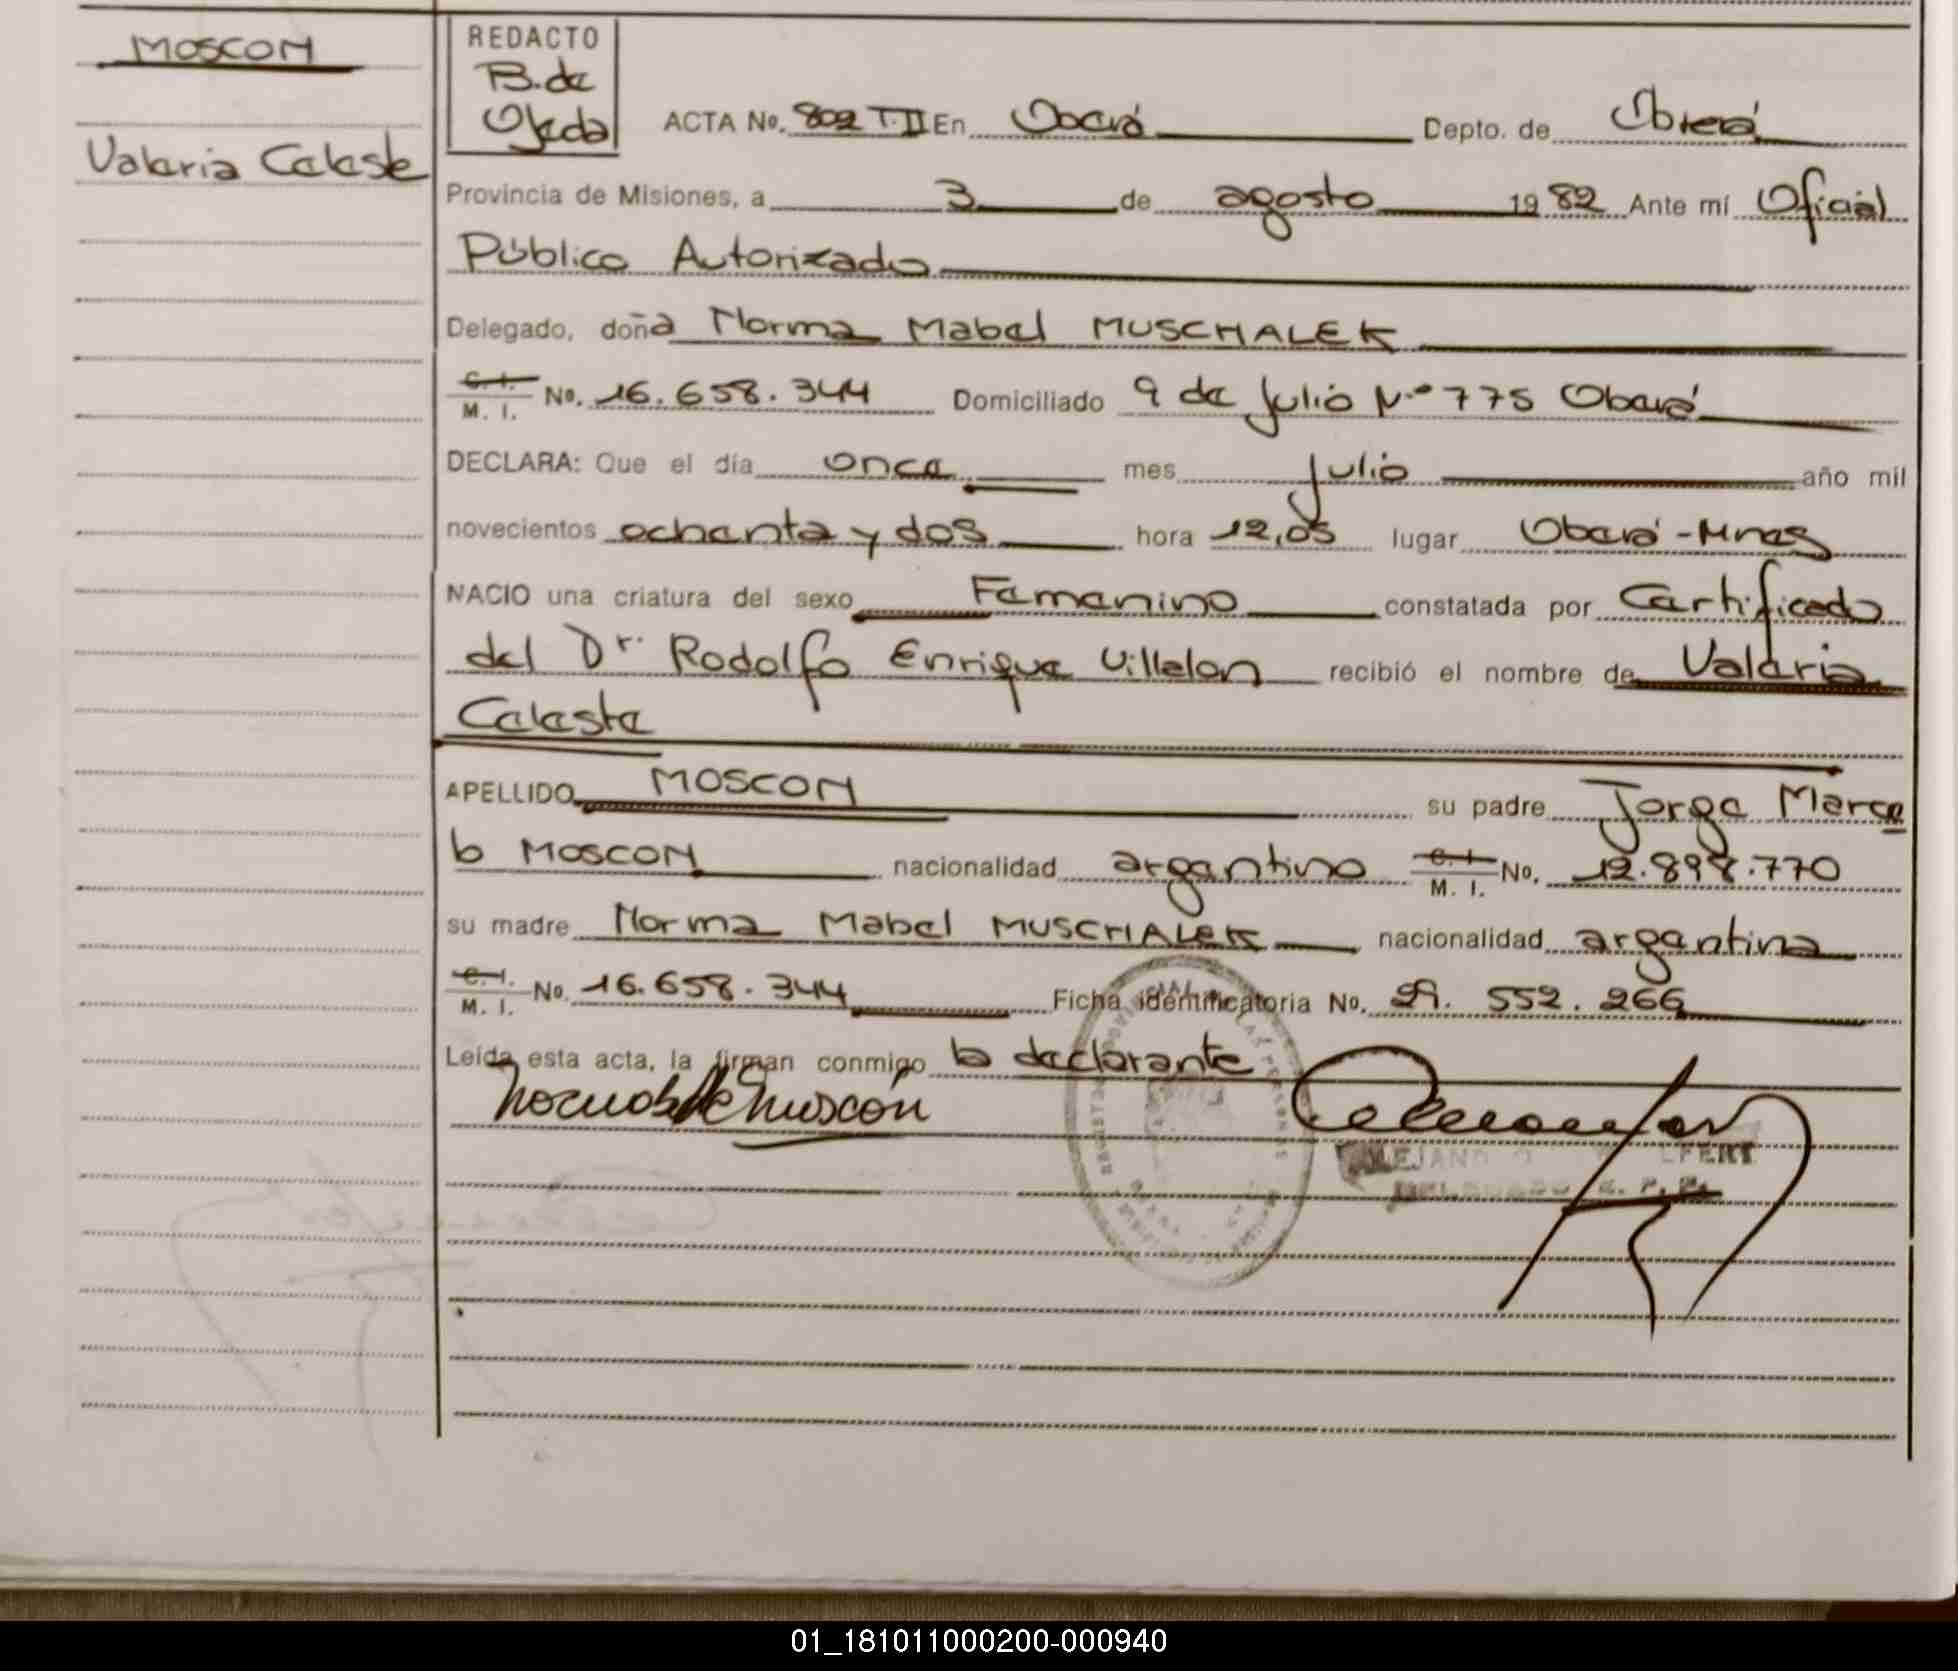 MOSCON
Valeria Celeste
REDACTO
B. de
Ojeda
ACTA No. 802 T. II En Oberá Depto. de Oberá
Provincia de Misiones, a 3 de agosto 1982 Ante mí Oficial
Público Autorizado
Delegado, doña Norma Mabel MUSCHALEK
C. I. M. I. No. 16.658.344 Domiciliado 9 de julio Nº 775 Oberá
DECLARA: Que el día once mes julio año mil
novecientos ochenta y dos hora 12,05 lugar Oberá - Mnes
NACIO una criatura del sexo Femenino constatada por Certificado
del Dr. Rodolfo Enrique Villalon recibió el nombre de Valeria
Celeste
APELLIDO MOSCON su padre Jorge Marce
lo MOSCON nacionalidad argentino C. I. M. I. No. 12.898.770
su madre Norma Mabel MUSCHALEK nacionalidad argentina
C. I. M. I. No. 16.658.344 Ficha identificatoria No. 29. 552. 266
Leída esta acta, la firman conmigo la declarante
01_181011000200-000940